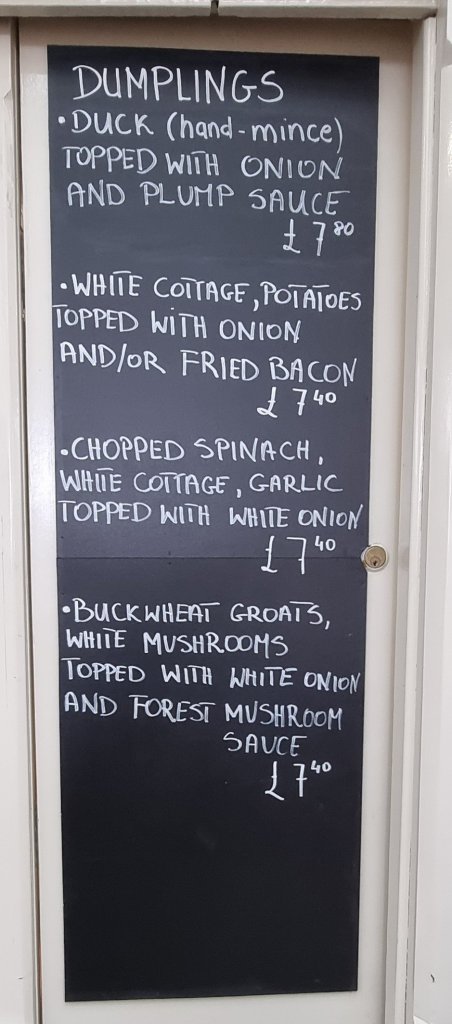 DUMPLINGS
•DUCK (hand-mince)
TOPPED WITH ONION
AND PLUMP SAUCE
£7 80
•WHITE COTTAGE, POTATOES
TOPPED WITH ONION
AND/OR FRIED BACON
£7 40
•CHOPPED SPINACH,
WHITE COTTAGE, GARLIC
TOPPED WITH WHITE ONION
£7 40
•BUCKWHEAT GROATS,
WHITE MUSHROOMS
TOPPED WITH WHITE ONION
AND FOREST MUSHROOM
SAUCE
£7 40